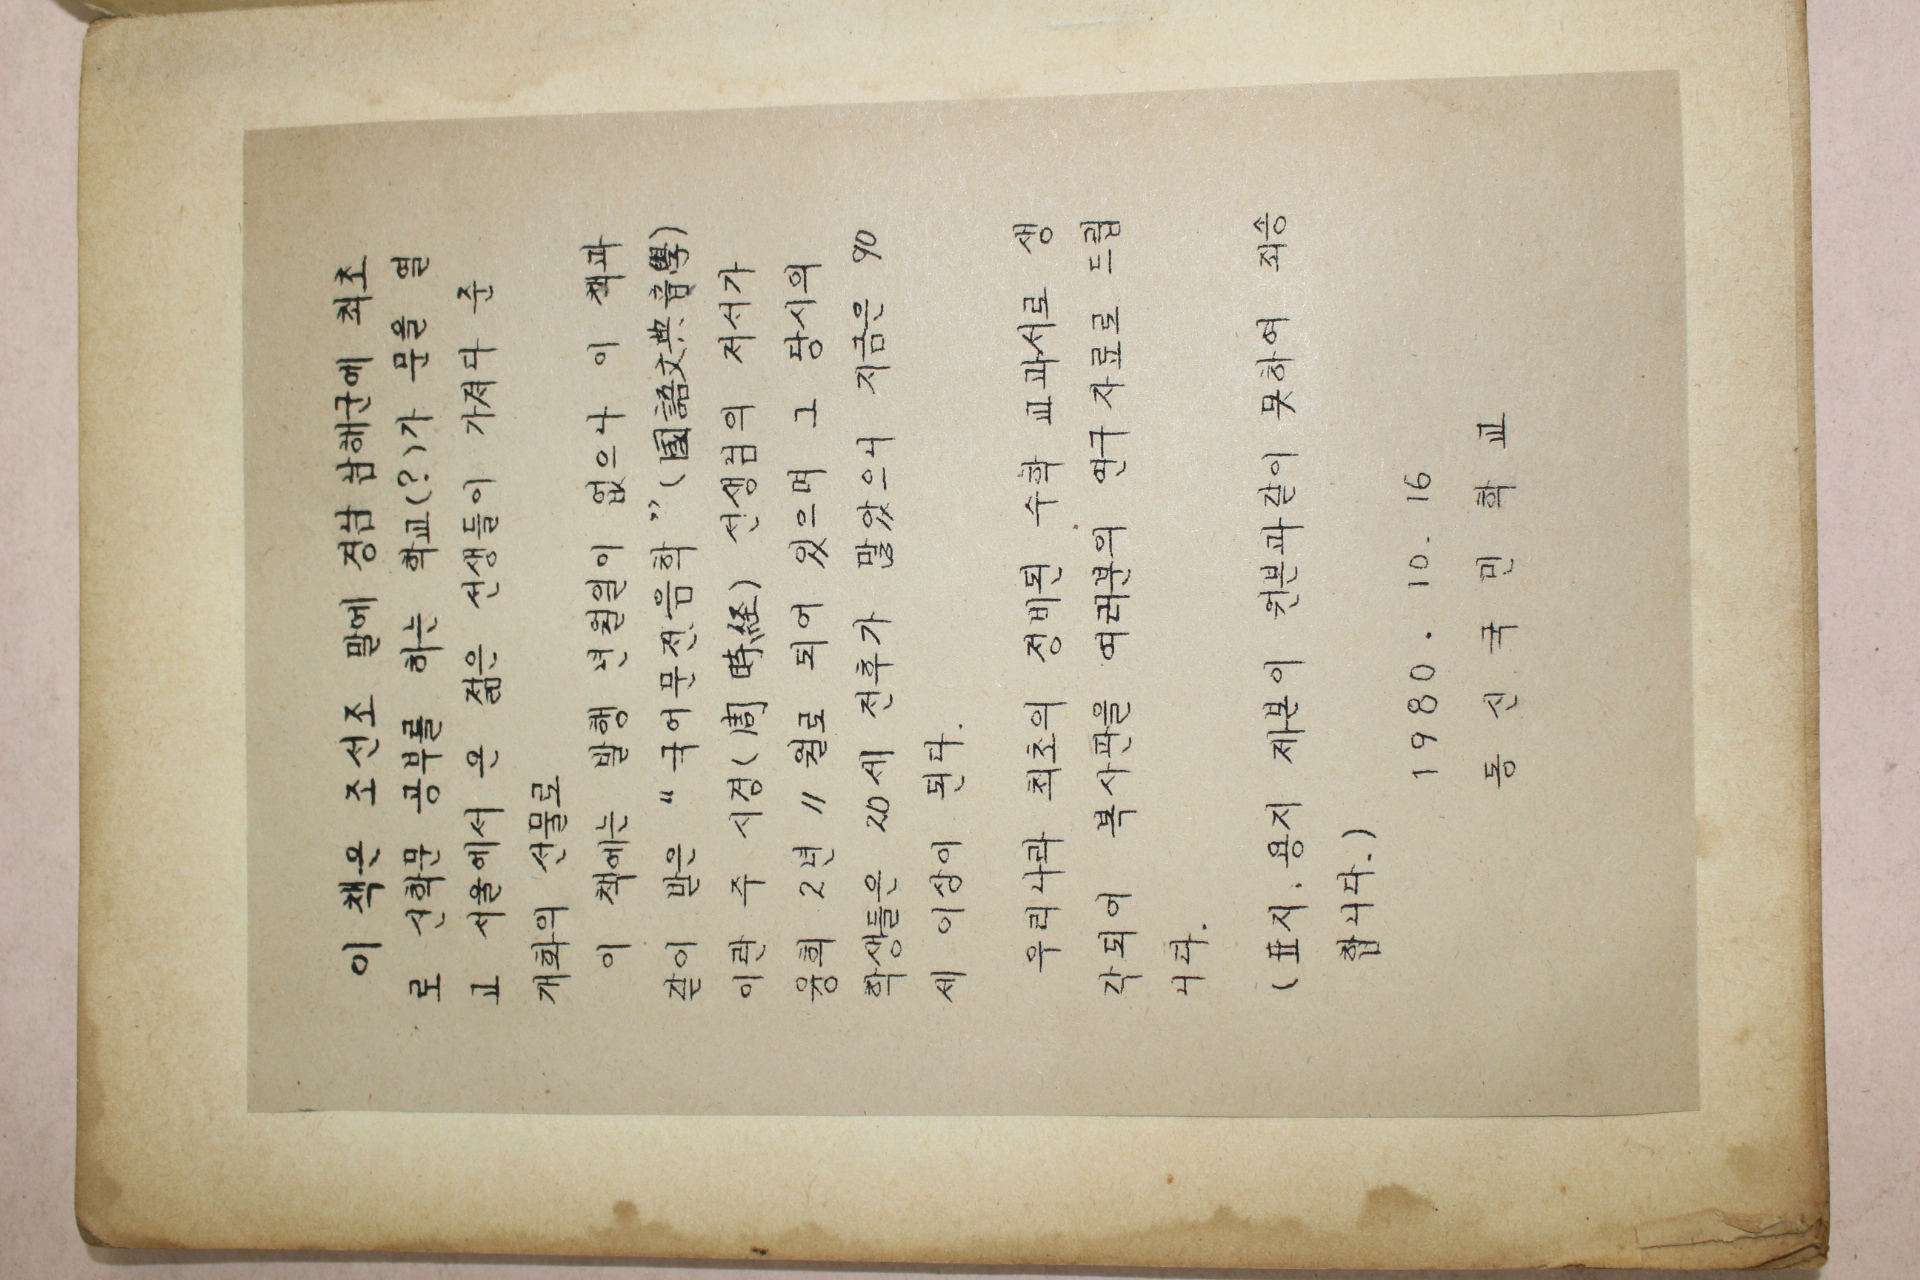 이 책은 조선조 말에 경남 남해군에 최초
로 신학문 공부를 하는 학교(?)가 문을 열
고 서울에서 온 젊은 선생들이 가져다 준
개화의 선물로
이 책에는 발행 년월일이 없으나 이 책과
같이 받은 “국어문전음학”(國語文典音學)
이란 주 시경(周 時経) 선생님의 저서가
융희 2년 11월로 되어 있으며 그 당시의
학생들은 20세 전후가 많았으니 지금은 90
세 이상이 된다.
우리나라 최초의 정비된 수학 교과서로 생
각되어 복사판을 여러분의 연구 자료로 드립
니다.
(표지, 용지 제본이 원본과 같이 못하여 죄송
합니다.)
1980. 10. 16
동신국민학교